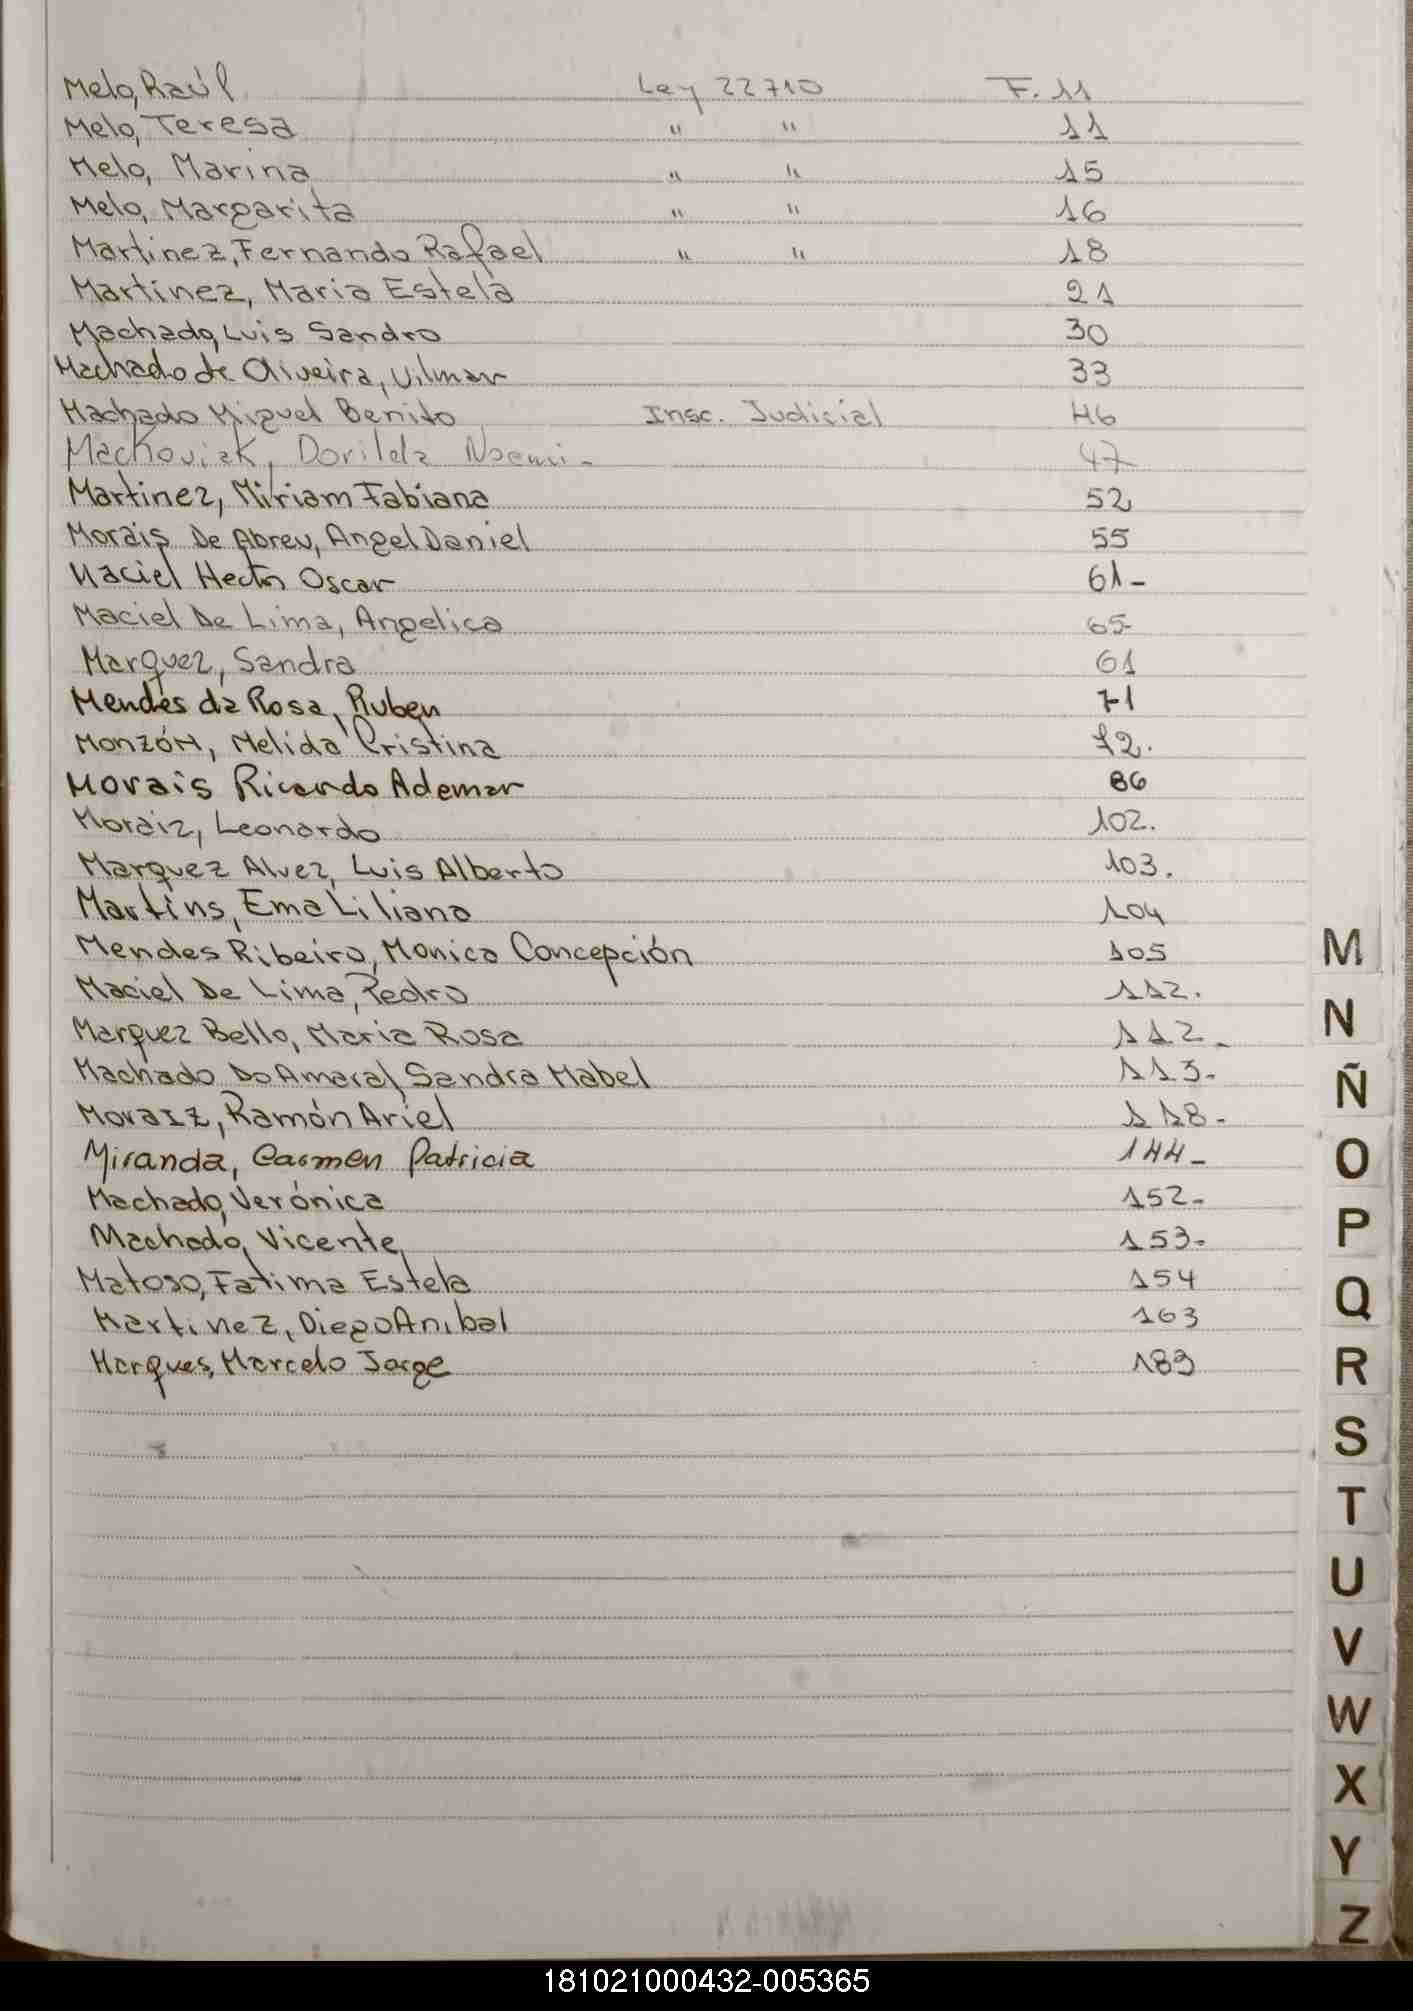 Melo, Raúl Ley 22710 F. 11
Melo, Teresa " " 11
Melo, Marina " " 15
Melo, Margarita " " 16
Martinez, Fernando Rafael " " 18
Martinez, Maria Estela 21
Machado, Luis Sandro 30
Machado de Oliveira, Vilmar 33
Machado Miguel Benito Insc. Judicial 46
Machoviak, Dorilda Noemi - 47
Martinez, Miriam Fabiana 52
Morais De Abreu, Angel Daniel 55
Maciel Hector Oscar 61-
Maciel De Lima, Angelica 65
Marquez, Sandra 61
Mendes da Rosa, Ruben 71
Monzón, Melida Cristina 72.
Morais Ricardo Ademar 86
Moraiz, Leonardo 102.
Marquez Alvez, Luis Alberto 103.
Martins, Ema Liliana 104
Mendes Ribeiro, Monica Concepción 105
Maciel De Lima, Pedro 112.
Marquez Bello, Maria Rosa 112-
Machado Do Amaral Sandra Mabel 113-
Moraiz, Ramón Ariel 118-
Miranda, Carmen Patricia 144-
Machado, Verónica 152-
Machado, Vicente 153-
Matoso, Fatima Estela 154
Martinez, Diego Anibal 163
Marques, Marcelo Jorge 183
M
N
Ñ
O
P
Q
R
S
T
U
V
W
X
Y
Z
181021000432-005365